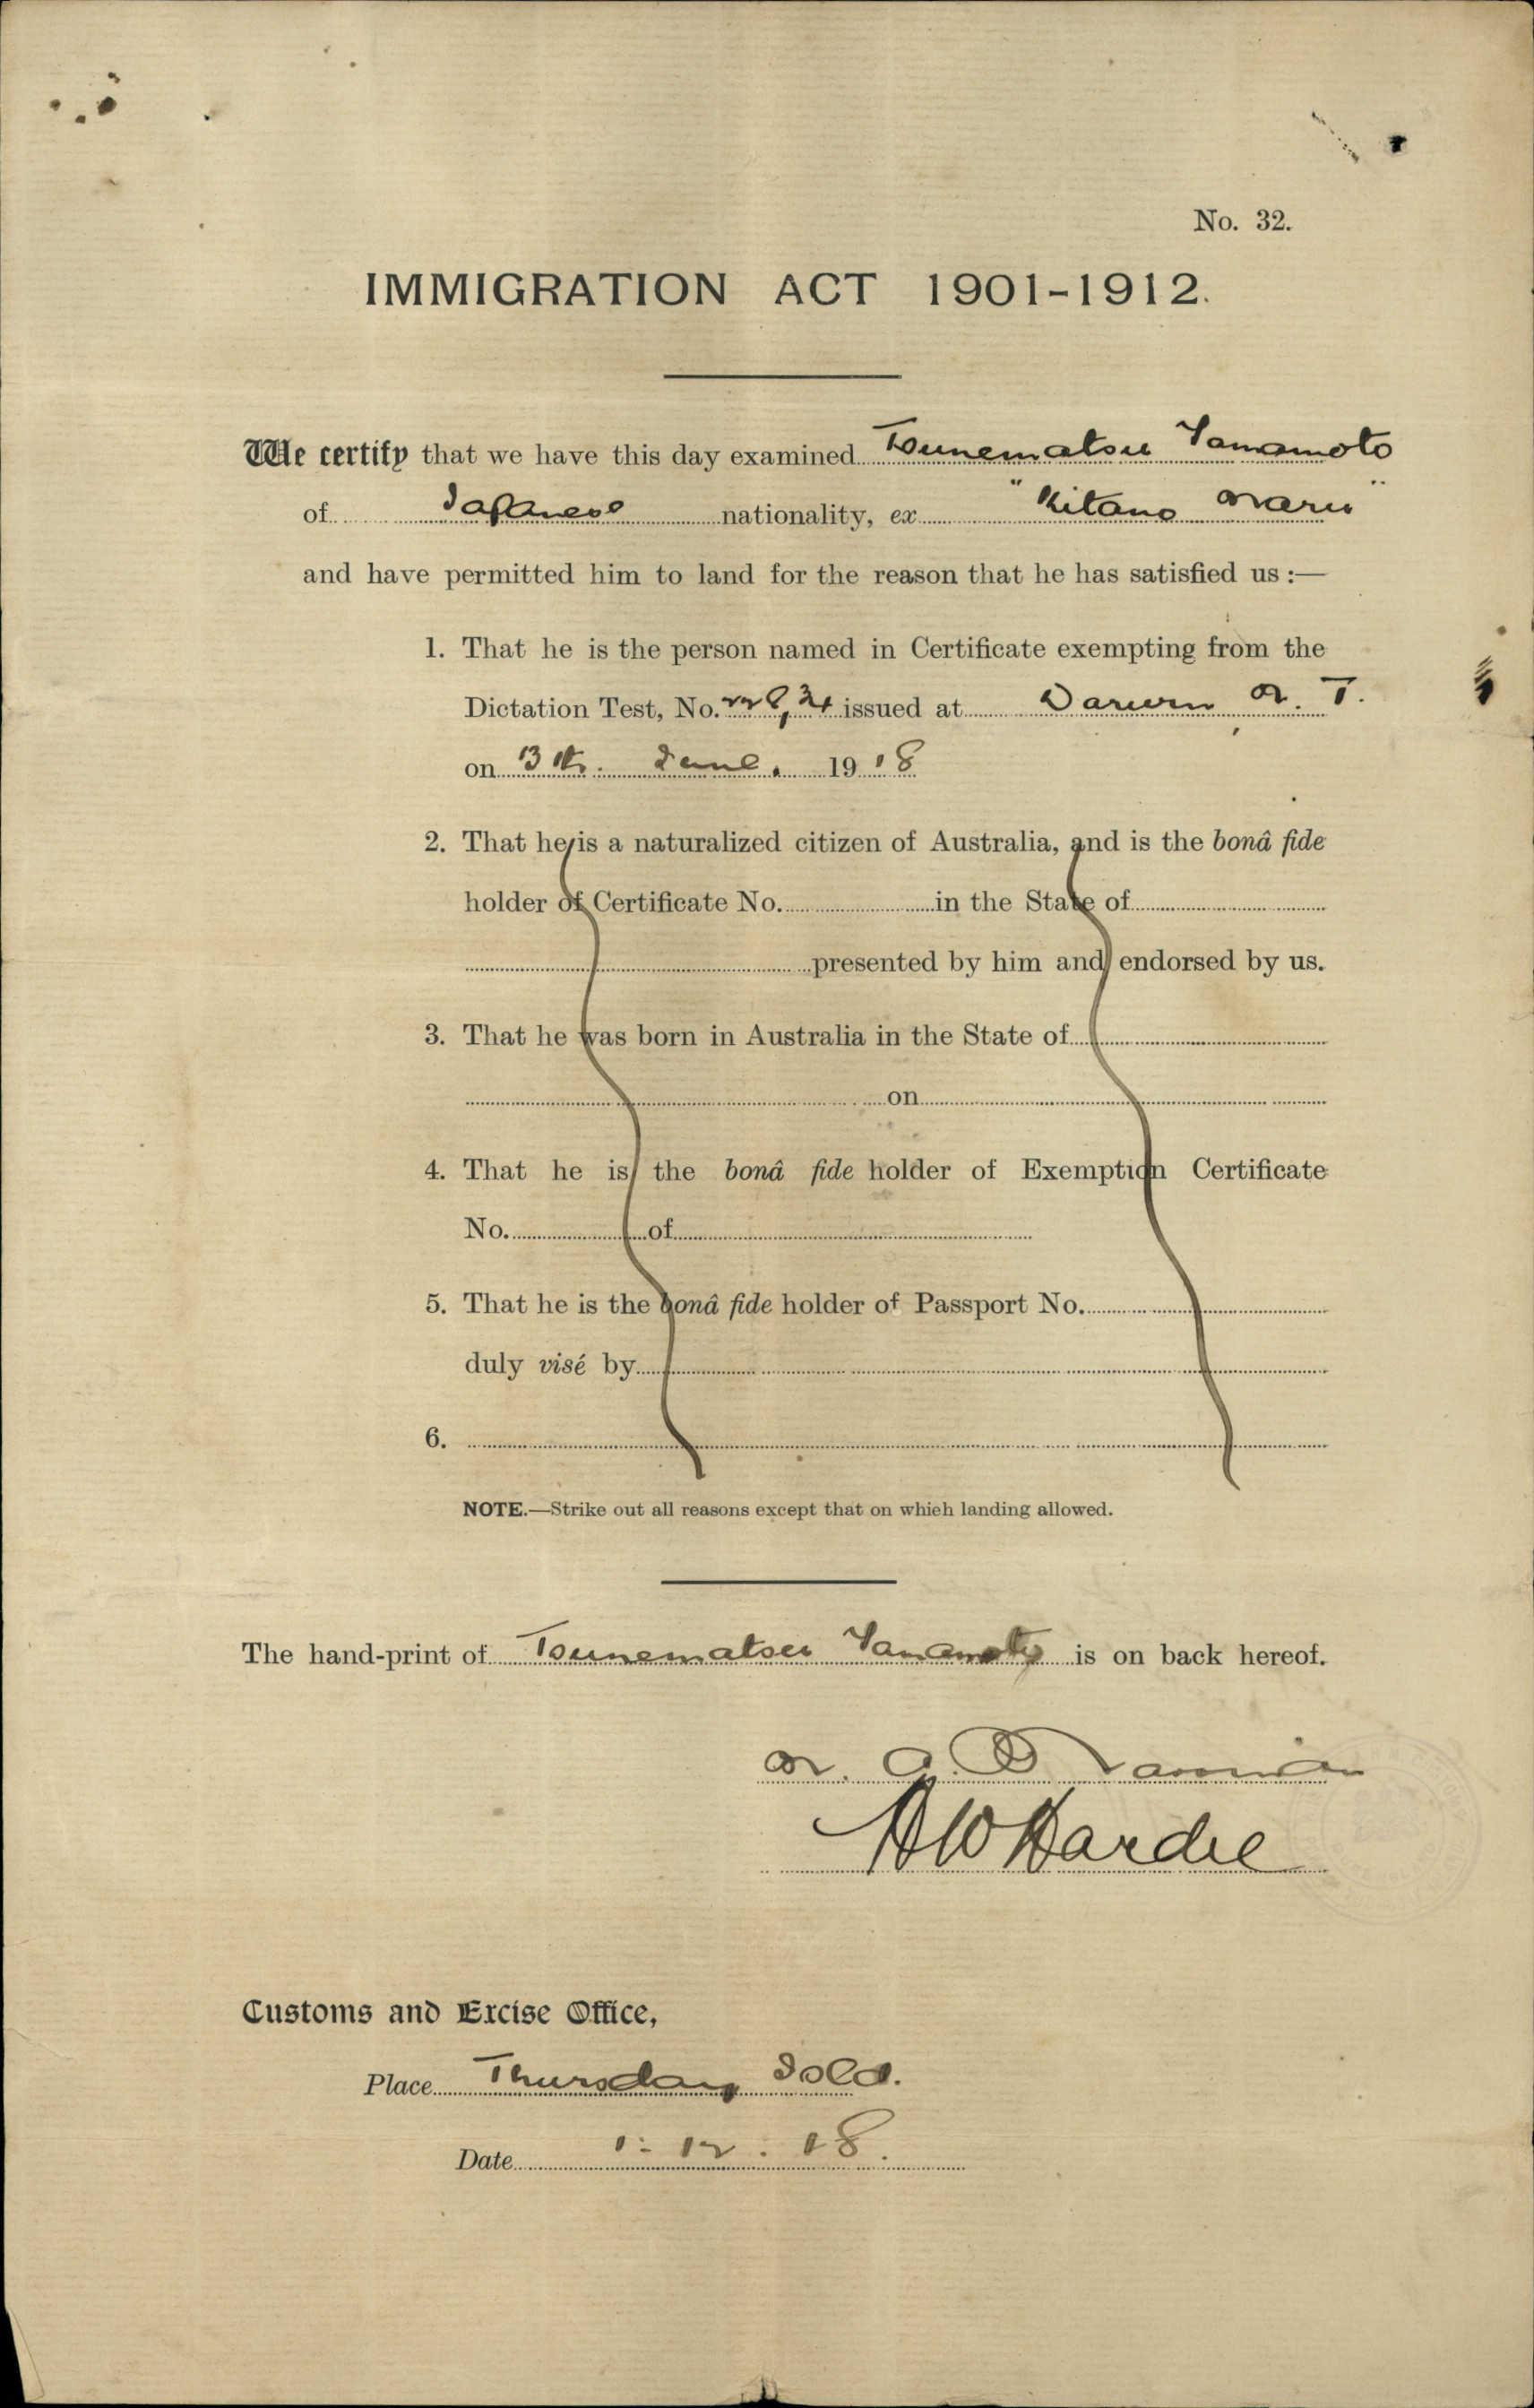 No. 32.
IMMIGRATION ACT 1901-1912.
We certify that we have this day examined Tsunematsu Yamamoto
of Japanese nationality, ex "Kitano Maru"
and have permitted him to land for the reason that he has satisfied us :—
1. That he is the person named in Certificate exempting from the
Dictation Test, No. issued at Darwin N. T.
on June. 1918
2. That he is a naturalized citizen of Australia, and is the bonâ fide
holder of Certificate No. in the State of
presented by him and endorsed by us.
3. That he was born in Australia in the State of
on
4. That he is the bonâ fide holder of Exemption Certificate
No. of
5. That he is the bonâ fide holder of Passport No.
duly visé by
6.
NOTE.—Strike out all reasons except that on which landing allowed.
The hand-print of Tsunematsu Yamamoto is on back hereof.
Hardie
Customs and Excise Office,
Place Thursday Isld.
Date 1. 12. 18.